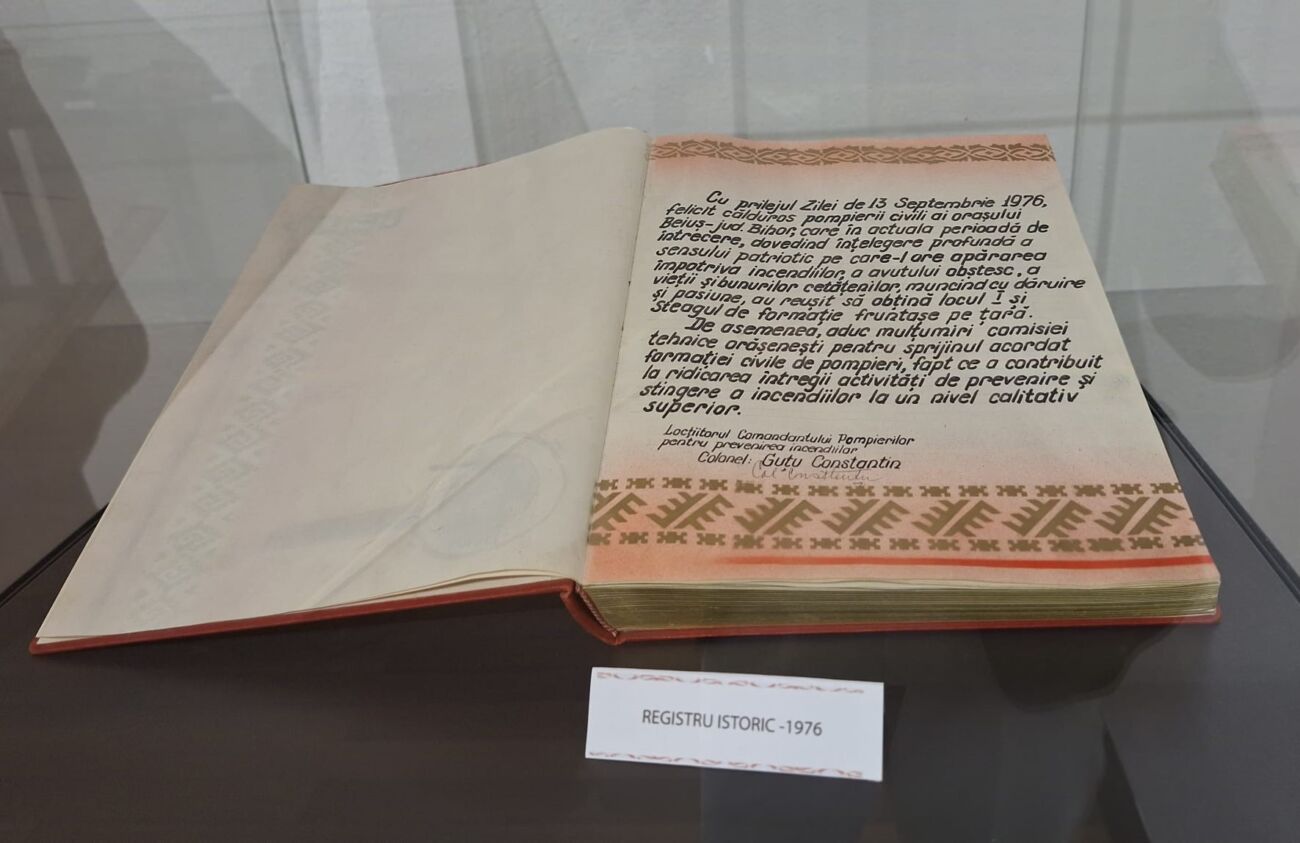 Cu prilejul Zilei de 13 Septembrie 1976,
felicit călduros pompierii civili ai orașului
Beiuș-jud. Bihor, care în actuala perioadă de
întrecere, dovedind înțelegere profundă a
sensului patriotic pe care-l are apărarea
împotriva incendiilor, a avutului obștesc, a
vieții și bunurilor cetățenilor, muncind cu dăruire
și pasiune, au reușit să obțină locul I și
Steagul de formație fruntașe pe țară.
De asemenea, aduc mulțumiri comisiei
tehnice orășenești pentru sprijinul acordat
formației civile de pompieri, fapt ce a contribuit
la ridicarea întregii activități de prevenire și
stingere a incendiilor la un nivel calitativ
superior.
Locțiitorul Comandantului Pompierilor
pentru prevenirea incendiilor
Colonel: Guțu Constantin
REGISTRU ISTORIC -1976